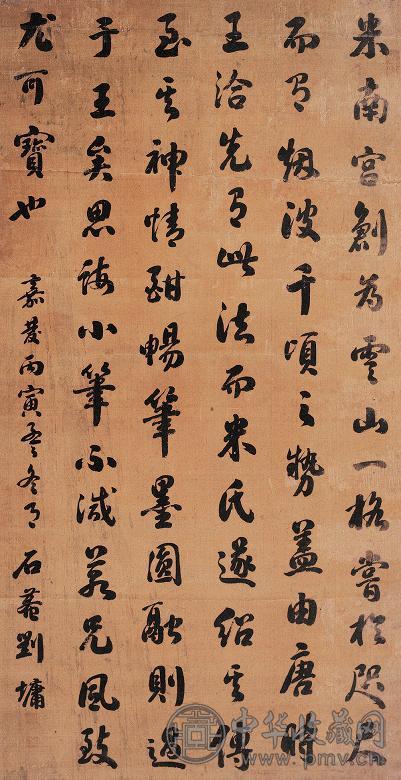 米南宮創為雲山一格嘗於咫尺
而有烟波千頃之勢蓋由唐時
王洽先有此法而米氏遂紹其傳
至其神情酣暢筆墨圓融則過
于王矣思小筆不減若兄風致
尤可寶也 嘉慶丙寅孟冬月 石菴劉墉
中华收藏网
www.pmv.cn